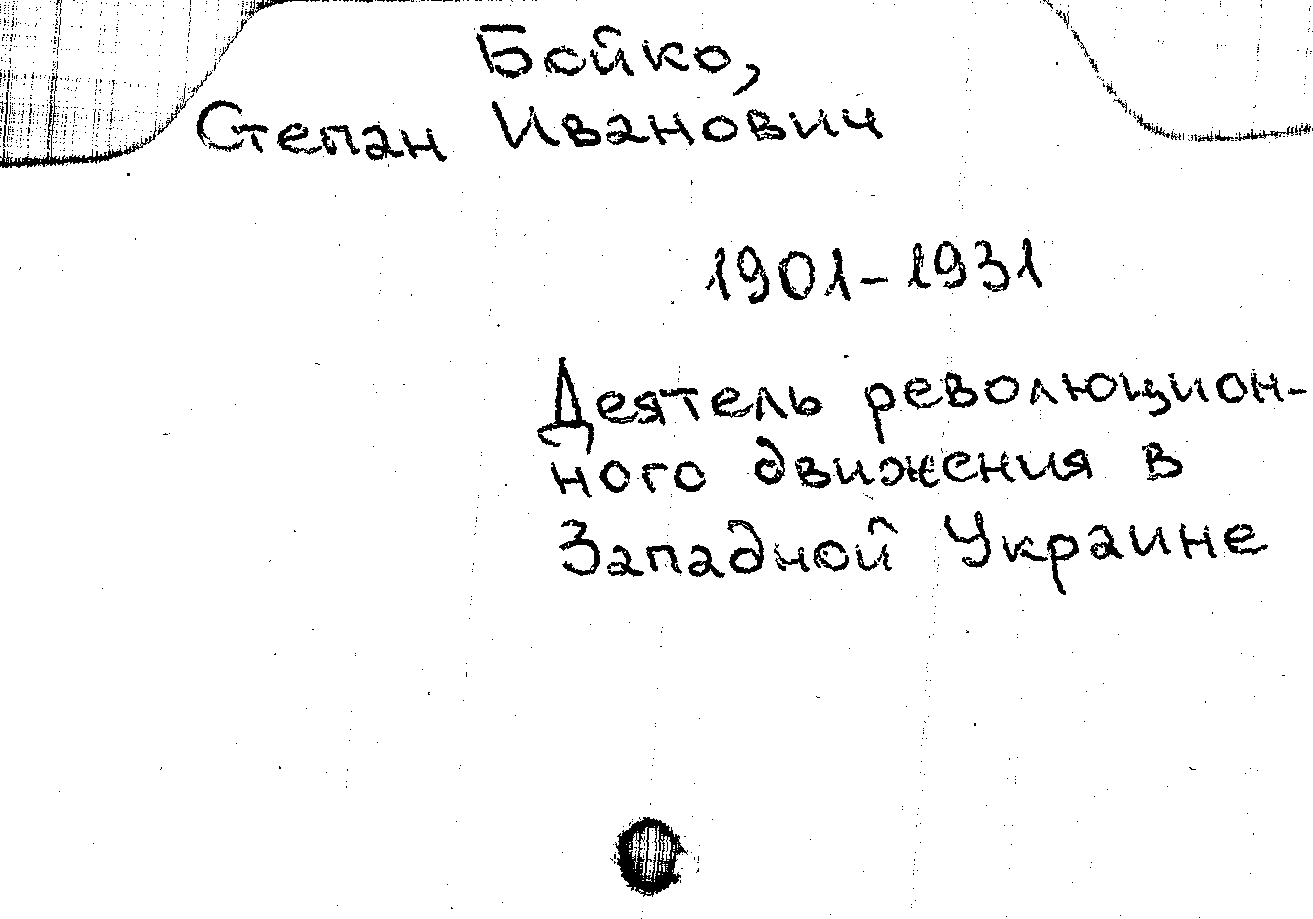 Бойко,
Степан Иванович
1901-1931
Деятель революцион-
ного движения в
Западной Украине